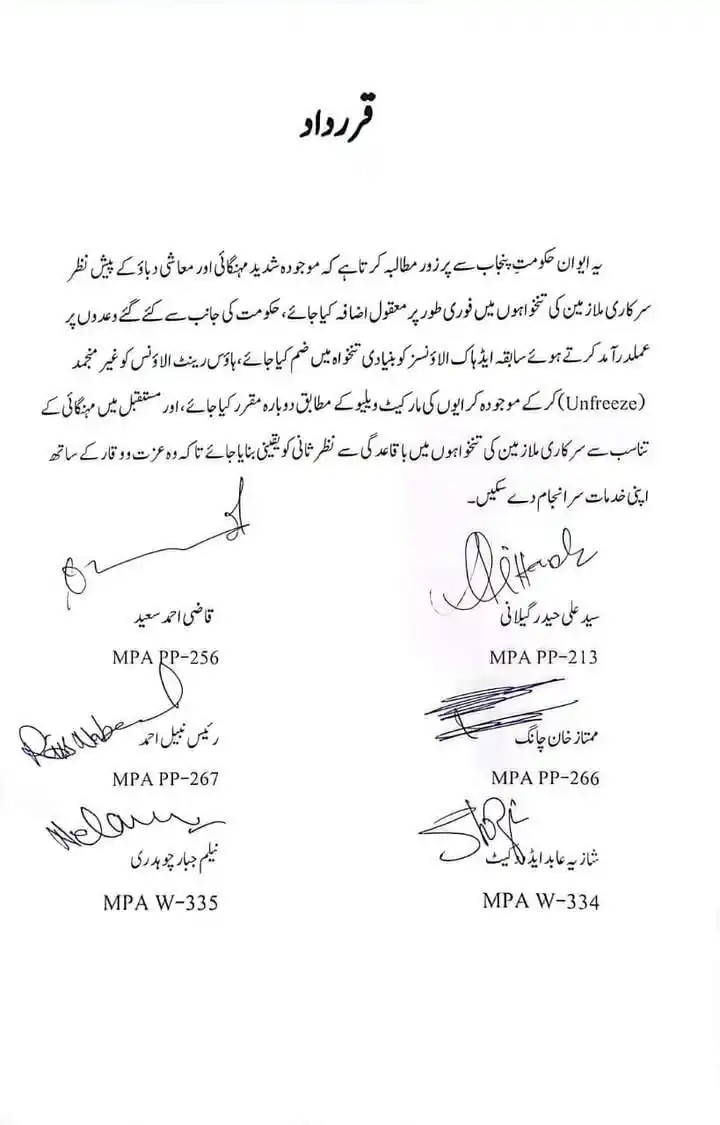 قرارداد
یہ ایوان حکومتِ پنجاب سے پرزور مطالبہ کرتا ہے کہ موجودہ شدید مہنگائی اور معاشی دباؤ کے پیش نظر
سرکاری ملازمین کی تنخواہوں میں فوری طور پر معقول اضافہ کیا جائے، حکومت کی جانب سے کئے گئے وعدوں پر
عملدرآمد کرتے ہوئے سابقہ ایڈہاک الاؤنسز کو بنیادی تنخواہ میں ضم کیا جائے، ہاؤس رینٹ الاؤنس کو غیر منجمد
(Unfreeze) کر کے موجودہ کرایوں کی مارکیٹ ویلیو کے مطابق دوبارہ مقرر کیا جائے، اور مستقبل میں مہنگائی کے
تناسب سے سرکاری ملازمین کی تنخواہوں میں باقاعدگی سے نظر ثانی کو یقینی بنایا جائے تاکہ وہ عزت و وقار کے ساتھ
اپنی خدمات سرانجام دے سکیں۔
سید علی حیدر گیلانی
MPA PP-213
قاضی احمد سعید
MPA PP-256
ممتاز خان چانگ
MPA PP-266
رئیس نبیل احمد
MPA PP-267
شازیہ عابد ایڈووکیٹ
MPA W-334
نیلم جبار چوہدری
MPA W-335